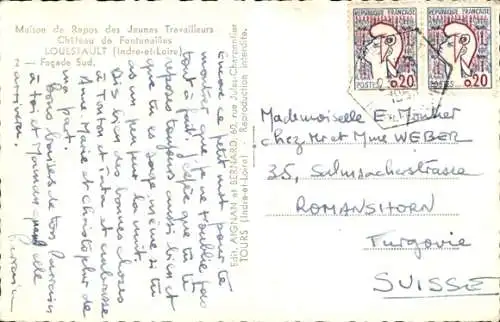 Maison de Repos des Jeunes Travailleurs
Château de Fontenailles
LOUESTAULT (Indre-et-Loire)
2 — Façade Sud.
Encore ce petit mot pour te
montrer que je ne t'oublie pas
tout à fait. J'espère que tu te
reposes toujours aussi bien et
que tu es sage même si tu
as un peu peur la nuit.
Dis bien des bonnes choses
à Tonton et Tata et embrasse
Anne-Marie et Christophe de
ma part.
Bons baisers de ton
à toi et Maman quand elle
arrivera.
Edit. AIGNAN et BERNARD, 60 rue Jules-Charpentier
TOURS (Indre-et-Loire) - Reproduction interdite
REPUBLIQUE FRANÇAISE
POSTES 0,20
REPUBLIQUE FRANÇAISE
POSTES 0,20
Mademoiselle E.
chez Mr et Mme WEBER
35, Salmsacherstrasse
ROMANSHORN
Turgovie
SUISSE